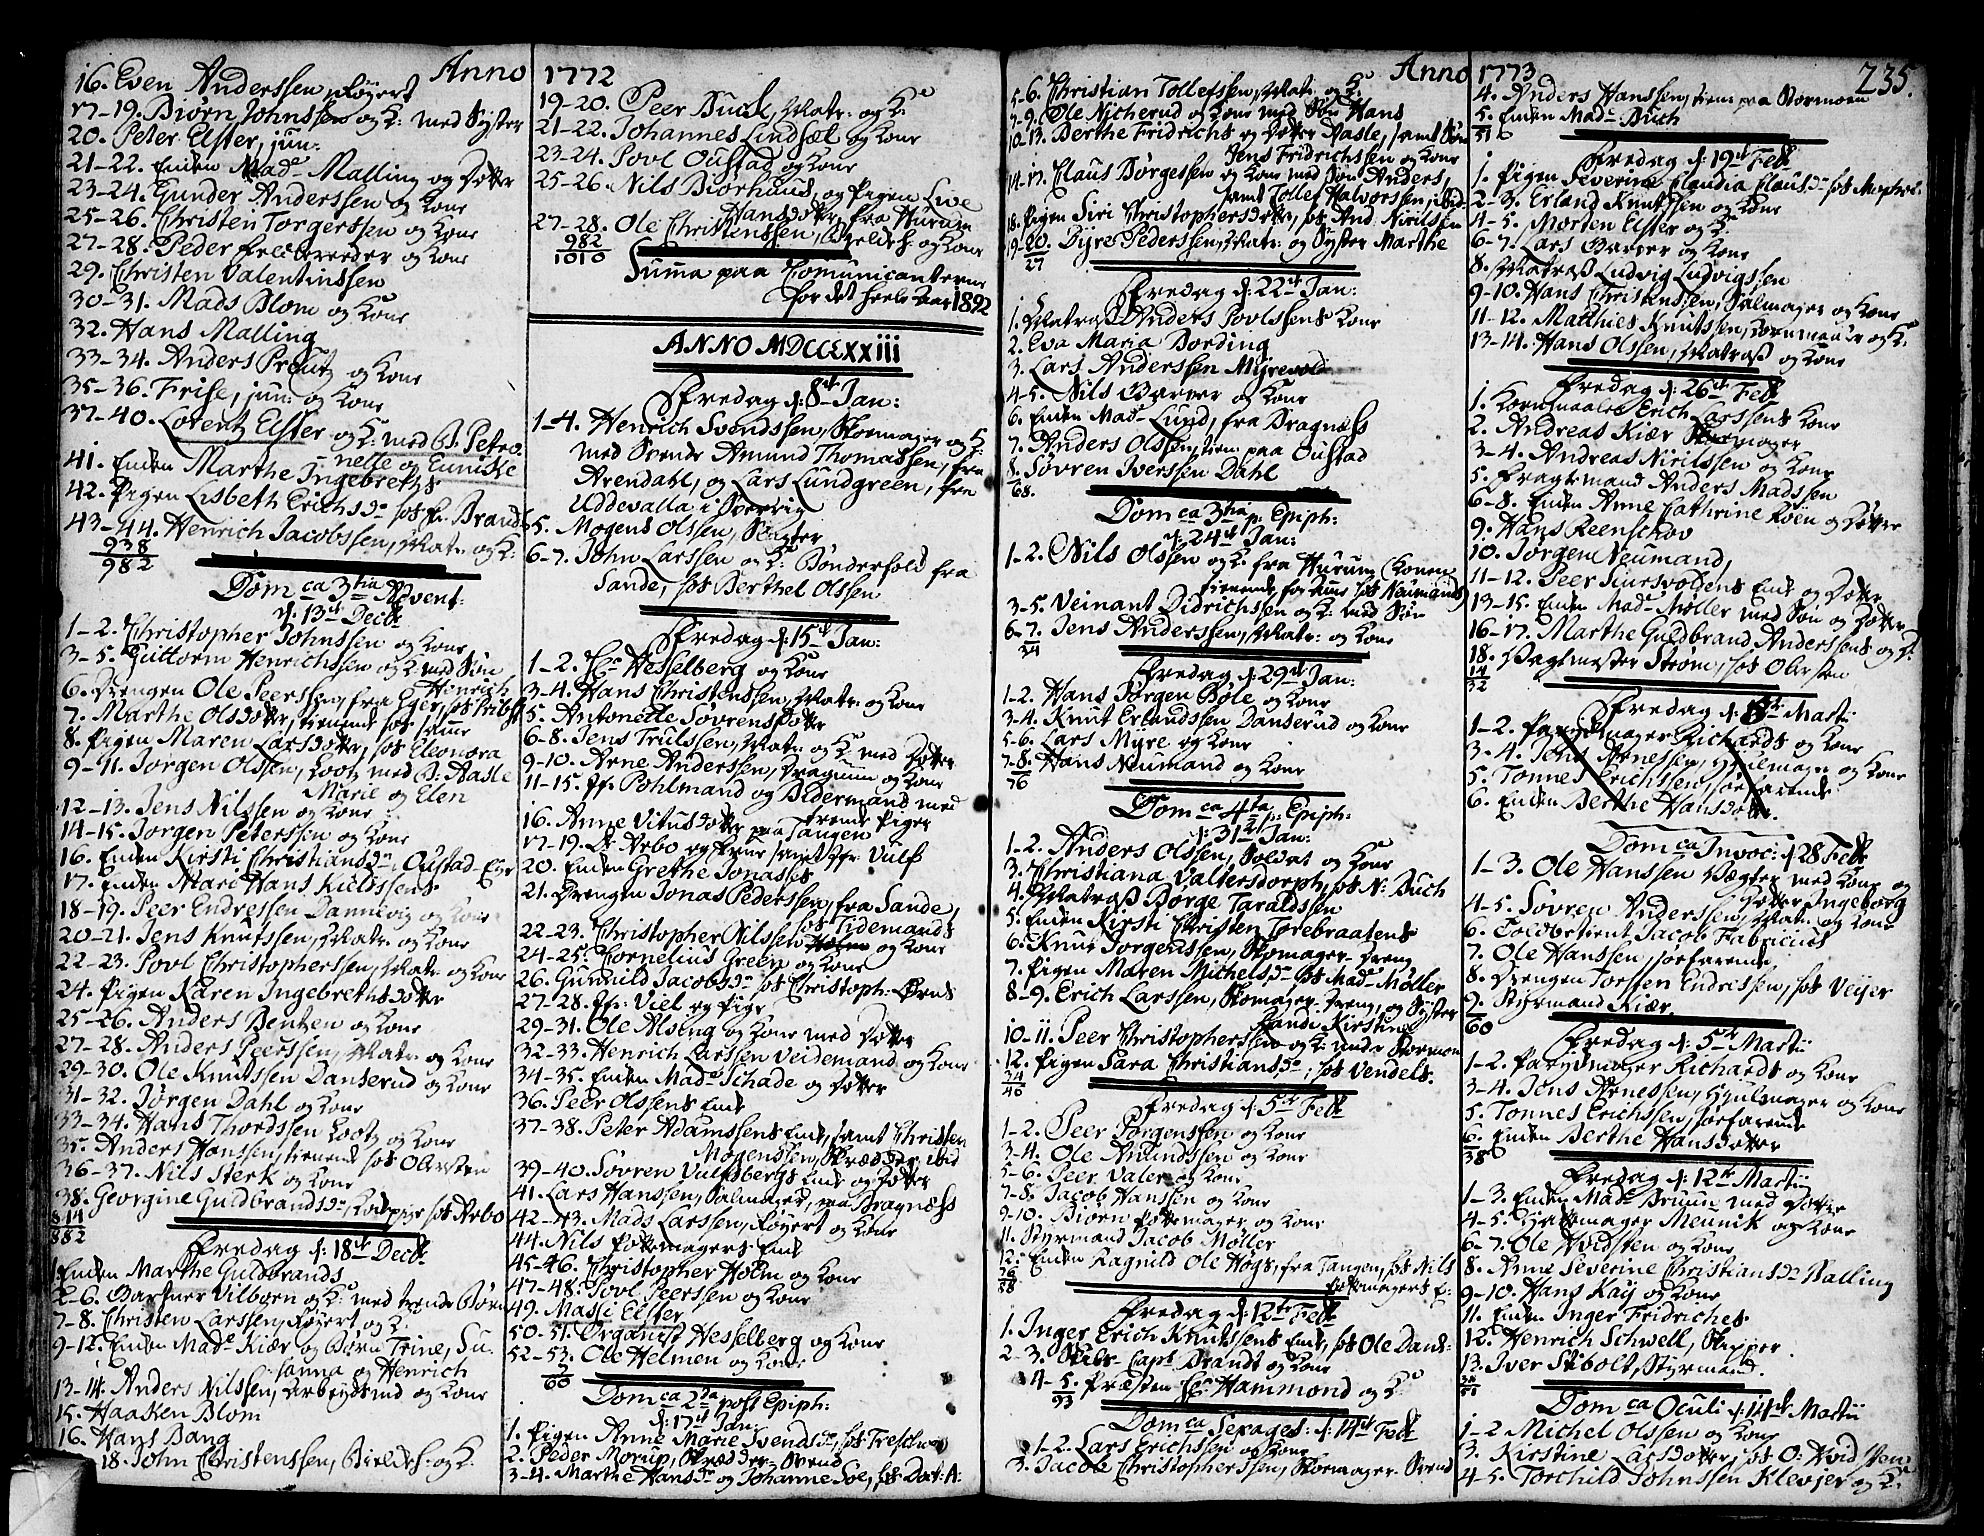 Anno 1772
16. Even Anderssen, Røyert
17-19. Biørn Johnssen og K: med Syster
20. Peter Elster, jun:
21-22. Enken Mad.e Malling og Dotter
23-24. Gunder Anderssen og Kone
25-26. Christen Torgerssen og Kone
27-28. Peder Feldbereeder og Kone
29. Christen Valentinssen
30-31. Mads Blom og Kone
32. Hans Malling
33-34. Anders Preutz og Kone
35-36. Friise, jun: og Kone
37-40. Lorentz Elster og K: med B: Petro-
nelle og Eunicke
41. Enken Marthe Ingebreths
42. Pigen Lisbeth Erichsd.r hos Hr. Brandt
43-44. Henrich Jacobssen, Matr: og K:
938
982
Dom.ca 3.tia Advent:
d: 13.de Decbr
1-2. Christopher Johnssen og Kone
3-5. Guttorm Henrichssen og K. med Søn
Henrich
6. Drengen Ole Peerssen, fra Eger, hos Pribst
7. Marthe Olsdotter, tienende hos samme
8. Pigen Maren Larsdotter, hos Eleonora
9-11. Jørgen Olssen, Lootz med B: Aasle
Marie og Elen
12-13. Jens Nilssen og Kone
14-15. Jørgen Peterssen og Kone
16. Enken Kirsti Christiansd.r, Oustad-Eye
17. Enken Mari Hans Kieldssens
18-19. Peer Endressen Dannevig og Kone
20-21. Jens Knutssen, Matr: og Kone
22-23. Povl Christopherssen, Matr: og Kone
24. Pigen Karen Ingebrethsdotter
25-26. Anders Bentzen og Kone
27-28. Anders Peerssen, Matr: og Kone
29-30. Ole Knutssen Danserud og Kone
31-32. Jørgen Dahl og Kone
33-34. Hans Thordssen Lootz og Kone
35. Anders Hanssen, tienende hos Obersten
36-37. Nils Sterk og Kone
38. Georgine Guldbrandsd.r, Kockepige hos Arbo
844
882
Fredag d: 18.de Decbr
1. Enken Marthe Guldbrands
2-6. Gartner Vilborn og K: med trende Børn
7-8. Christen Larssen, Røyert og K:
9-12. Enken Mad.e Kiær og Børn Trine, Su-
sanna og Henrich
13-14. Anders Nilssen, Arbeydsmd og Kone
15. Haaken Blom
16. Hans Bang
18. John Christenssen, Bieldes- og K.
19-20. Peer Buck, Matr: og K:
21-22. Johannes Lindsæl og Kone
23-24. Povl Oustad og Kone
25-26. Nils Biørhuus og Pigen Live
Hansdotter, fra Hurum
27-28. Ole Christenssen, Bieldes og Kone
982
1010
Summa paa Comunicanterne
for det heele Aar 1892
ANNO MDCCLXXIII
Fredag d: 8.de Jan:
1-4. Henrich Svendssen, Skomager og K:
med Svende Amund Thomassen, fra
Arendahl, og Lars Lundgreen, fra
Uddevalla i Sverrig
5. Mogens Olssen, Slagter
6-7. John Larssen og K: Bønderfolk fra
Sande, hos Berthel Olssen
Fredag d: 15.de Jan:
1-2. Hr. Hesselberg og Kone
3-4. Hans Christenssen, Matr: og Kone
5. Antonette Søvrensdotter
6-8. Jens Trulssen, Matr: og K: med Dotter
9-10. Arne Anderssen, Dragun og Kone
11-15. Hr. Pohlmand og Bedermand med
trende Piger
16. Anne Vitusdotter paa Tangen
17-19. Hr. Arbo og Frue samt Hr. Vulf
20. Enken Grethe Jonasses
21. Drengen Jonas Pederssen, fra Sande,
hos Tidemands
22-23. Christopher Nilssen og Kone
24-25. Cornelius Green og Kone
26. Gunnild Jacobsd.r hos Christoph: Ørns
27-28. Hr: Viel og Pige
29-31. Ole Alseng og Kone med Dotter
32-33. Henrich Larssen Veidemand og Kone
34-35. Enken Mad.e Schade og Dotter
36. Peer Olssens Enke
37-38. Peter Adamssens Enke, samt Christen
Mogenssen, Skrædder, ibid
39-40. Søvren Vulfsbergs Enke og Dotter
41. Lars Hanssen, Salmager, paa Bragnæss
42-43. Mads Larssen, Røyert og Kone
44. Nils Pottemagers Enke
45-46. Christopher Holm og Kone
47-48. Povl Peerssen og Kone
49. Masi Elster
50-51. Organist Hesselberg og Kone
52-53. Ole Helmen og Kone
60
Dom.ca 2.da post Epiph:
d: 17.de Jan:
1. Pigen Anne Marie Svendsd.r, hos Treschow
2. Peder Morup, Skrædder-Svend
3-4. Marthe Hansd.r og Johanne Soe, hos Doct: A:
Anno 1773
235.
5-6. Christian Tollefssen, Matr: og K:
7-9. Ole Nicherud og Kone med Søn Hans
10-13. Berthe Fridrichs og Dotter Aasle, samt Søn
Jens Fridrichssen og Kone
14-17. Claus Børgessen og Kone med Søn Anders,
samt Tollef Halvorssen, ibid
18. Pigen Siri Christophersdotter, hos And. Nirilssen
19-20. Byre Pederssen, Matr: og Syster Marthe
27
Fredag d: 22.de Jan:
1. Matros Anders Povlssens Kone
2. Eva Maria Bording
3. Lars Anderssen Myrevold
4-5. Nils Garver og Kone
6. Enken Mad.e Lund, fra Bragness
7. Anders Olssen, tien: paa Oustad
8. Søvren Iverssen Dahl
68.
Dom.ca 3.tia p: Epiph:
d: 24.de Jan:
1-2. Nils Olssen og K: fra Hurum (Konen
tienende for Amme hos Neumands)
3-5. Veinant Didrichssen og K: med Søn
6-7. Jens Anderssen, Matr: og Kone
34
Fredag d: 29.de Jan:
1-2. Hans Jørgen Bøle og Kone
3-4. Knut Erlandssen Danserud og Kone
5-6. Lars Myre og Kone
7-8. Hans Neumand og Kone
76
Dom.ca 4.ta p: Epiph:
d: 31.de Jan:
1-2. Anders Olssen, Soldat og Kone
3. Christiana Valtersdorph, hos N: Buch
4. Matros Børge Taraldssen
5. Enken Kirsti Christen Torebraatens
6. Knut Jørgenssen, Skomager-Dreng
7. Pigen Maren Michelsd.r hos Mad.e Møller
8-9. Erich Larssen, Skomager-Dreng, og Syster
Randi Kirstine
10-11. Peer Christopherssen og K: under Stormoen
12. Pigen Sara Christiansd.r; hos Vendels.
34
46
Fredag d: 5.te Febr
1-2. Peer Jørgenssen og Kone
3-4. Ole Amundssen og Kone
5-6. Peer Valer og Kone
7-8. Jacob Hanssen og Kone
9-10. Biørn Pottemager og Kone
11. Styrmand Jacob Møller
12. Enken Ragnild Ole Høgs, fra Tangen, hos Nils
Pottemagers E:
76
88
Fredag d: 12.te Febr
1. Inger Erich Knutssens Enke, hos Ole Dans-
2-3. Skibs-Capt: Brandt og Kone
4-5. Præsten Hr: Hammond og K:
93
Dom.ca Sexages: d: 14.de Febr
1-2. Lars Erichssen og Kone
3. Jacob Christopherssen, Skomager-Svend
4. Anders Hanssen, tien: paa Stormoen
5. Enken Mad.e Buch
51
Fredag d: 19.de Febr
1. Pigen Severine Claudia Clausd.r hos Muphel
2-3. Erland Knutssen og Kone
4-5. Morten Elster og K:
6-7. Lars Garver og Kone
8. Matros Ludvig Ludvigssen
9-10. Hans Christenssen, Salmager og Kone
11-12. Matthies Knutssen, Kornmaaler og K:
13-14. Hans Olssen, Matros og Kone
Fredag d: 26.de Febr
1. Kornmaaler Erich Larssens Kone
2. Andreas Kiær
3-4. Andreas Nirilssen og Kone
5. Fragtmand Anders Madssen
6-8. Enken Anne Cathrine Røen og Dotter
9. Hans Reenskov
10. Jørgen Neumand,
11-12. Peer Juursvoldens Enke og Dotter
13-15. Enken Mad.e Møller med Søn og Dotter
16-17. Marthe Guldbrand Anderssens og D:
18. Vagtmester Strøm, hos Obersten
14
32
Fredag d: 5.te Martii
1-2. Parykmager Richards og Kone
3-4. Jens Arnessen, Hiulmager og Kone
5. Tønnes Erichssen, søefarende
6. Enken Berthe Hansdotter.
Dom.ca Invoc: d: 28 Febr
1-3. Ole Hanssen Vægter med Kone og
Dotter Ingeborg
4-5. Søvren Anderssen, Matr: og Kone
6. Toldbetient Jacob Fabricius
7. Ole Hanssen, søefarende
8. Drengen Torsten Endrissen, hos Veijer
9. Styrmand Kiær.
60
Fredag d: 5.te Martii
1-2. Parykmager Richards og Kone
3-4. Jens Arnessen, Hjulmager og Kone
5. Tønnes Erichssen, søefarende
6. Enken Berthe Hansdotter
38
Fredag d: 12.te Martii
1-3. Enken Mad.e Bruun med Dotter
4-5. Hattemager Mennik og Kone
6-7. Ole Hvidsten og Kone
8. Anne Severine Christiansd.r Malling
9-10. Hans Kaij og Kone
11. Enken Inger Fridriches
12. Henrich Schwell, Skipper
13. Iver Stibolt, Styrmand.
51
Dom.ca Oculi d: 14.de Martii
1-2 Michel Olssen og Kone
3. Kirstine Larsdotter, hos O: Hvidsten
4-5. Torchild Johnssen Klevjer og K: